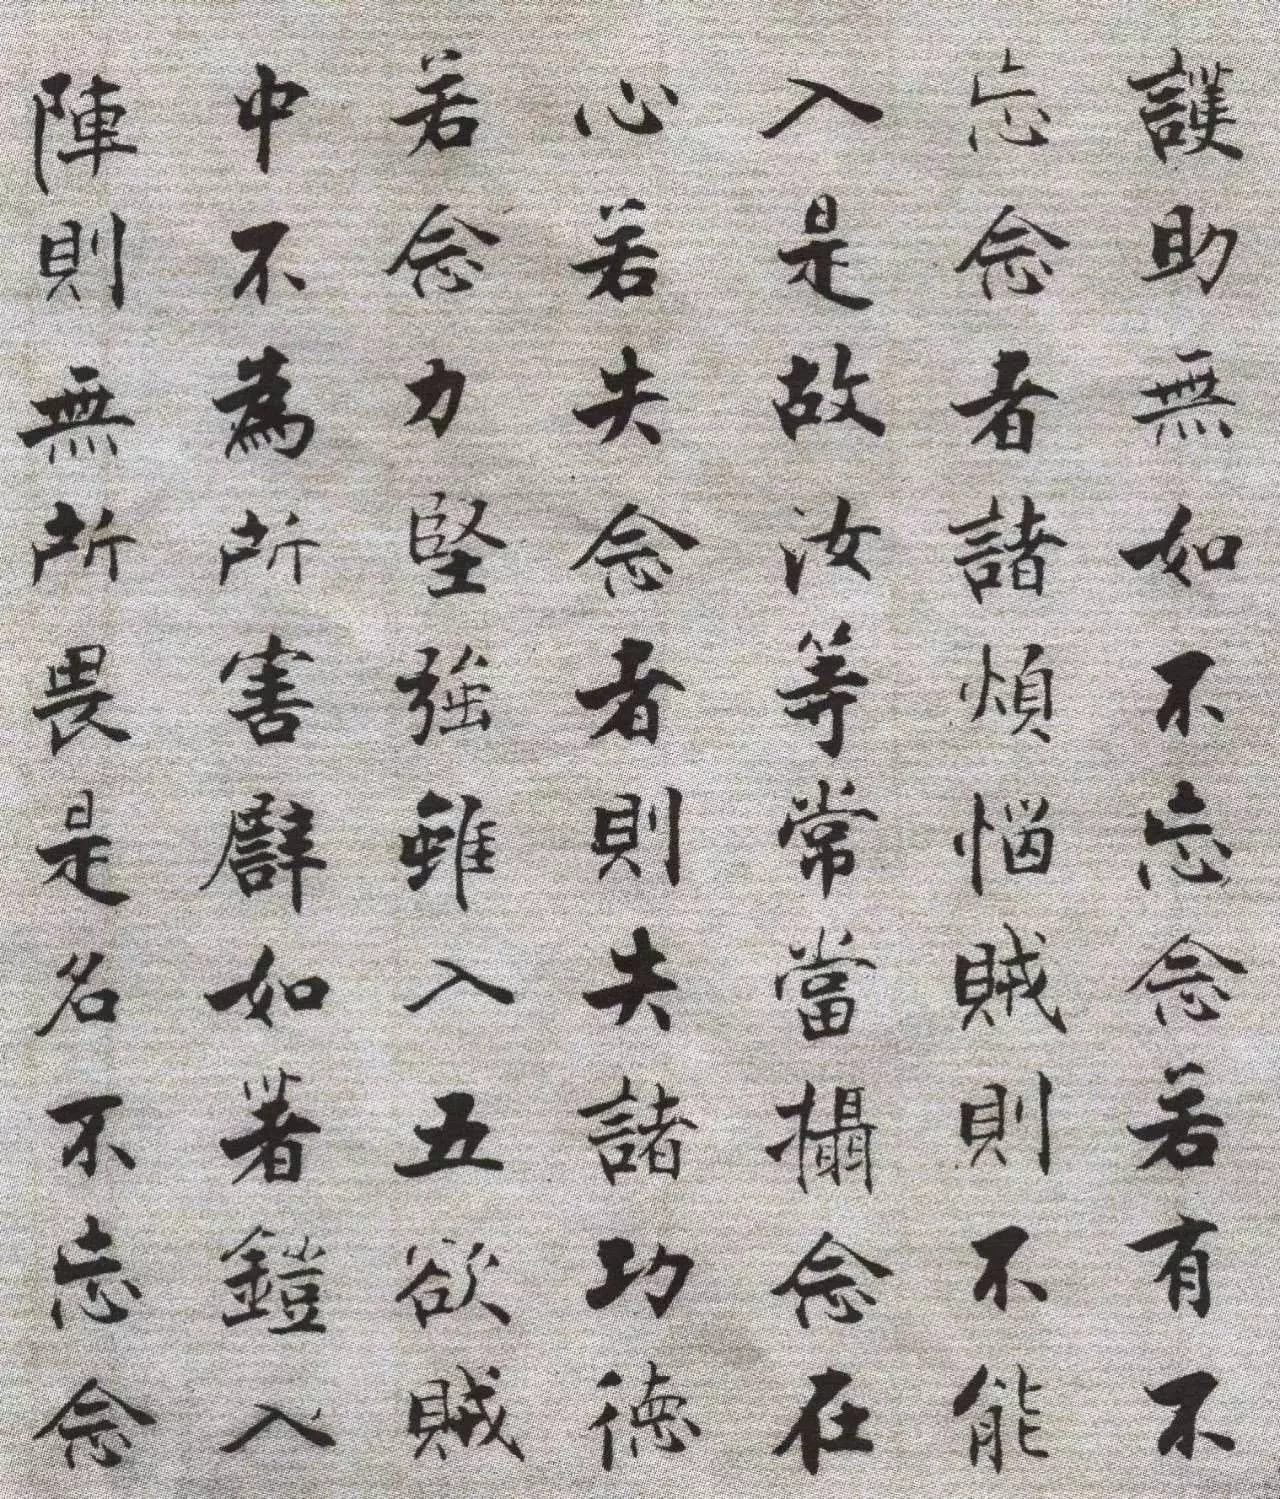 護助無如不忘念若有不
忘念者諸煩惱賊則不能
入是故汝等常當攝念在
心若失念者則失諸功德
若念力堅強雖入五欲賊
中不為所害譬如著鎧入
陣則無所畏是名不忘念